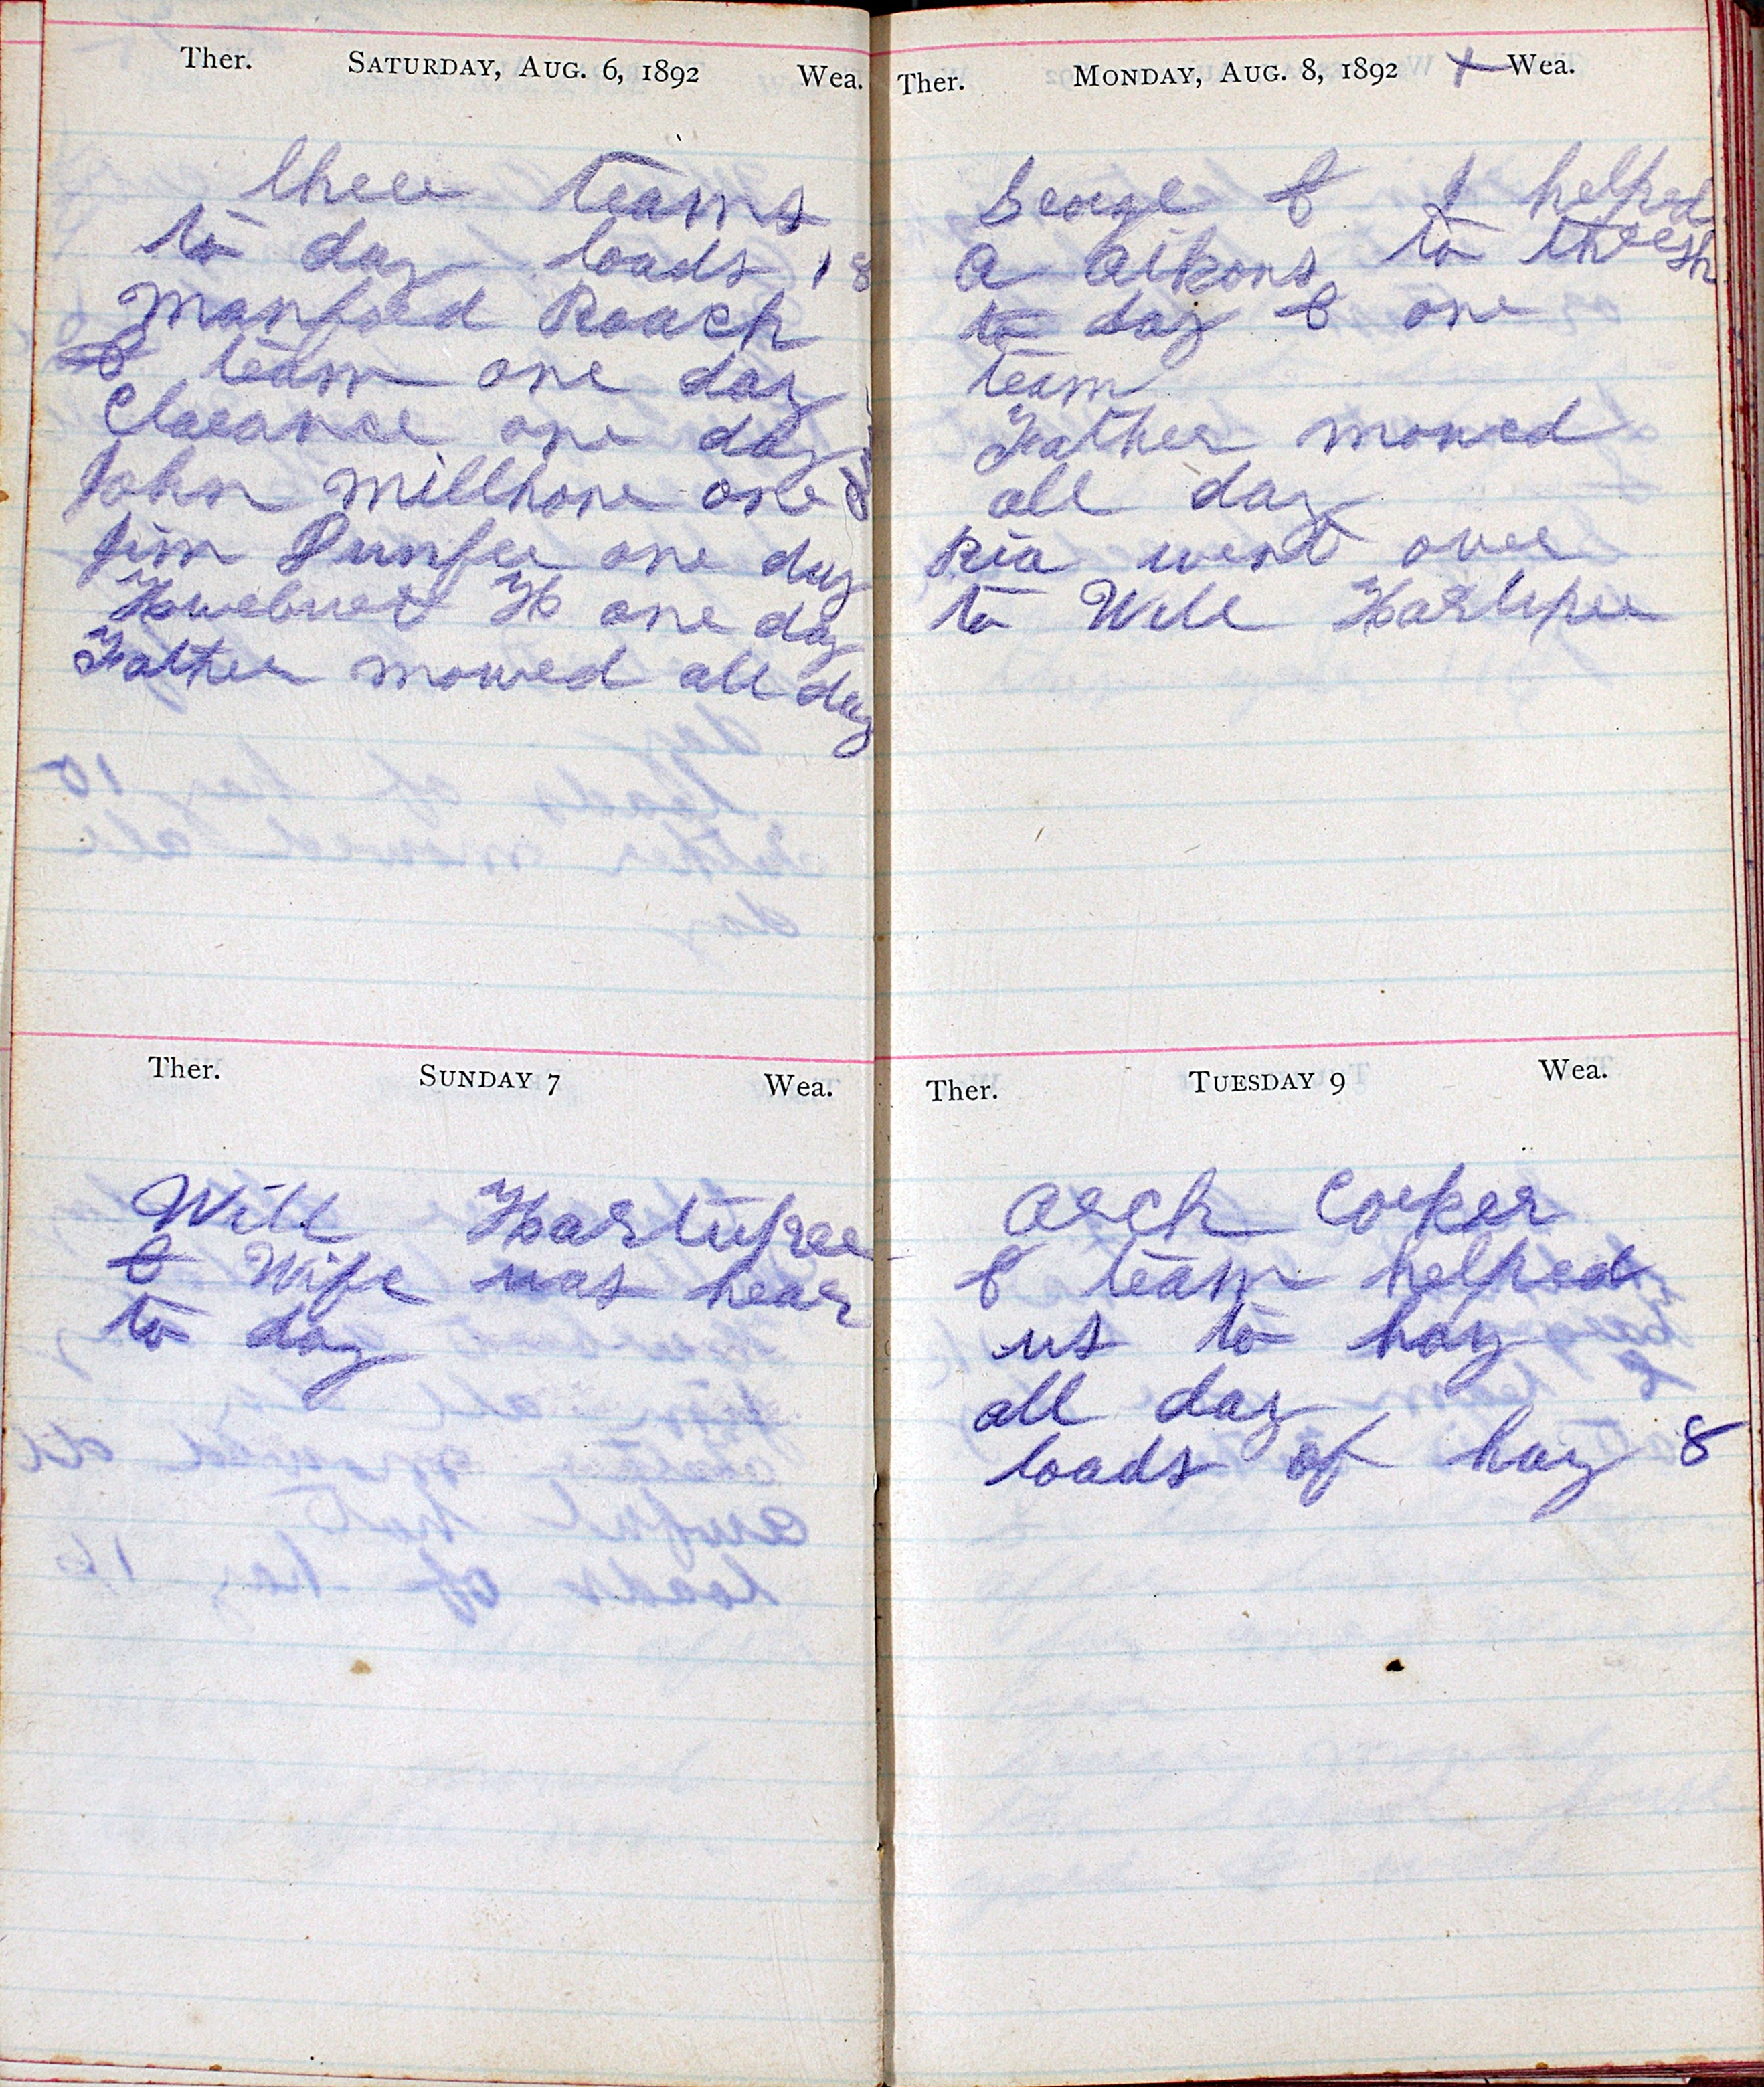 Ther. SATURDAY, AUG. 6, 1892 Wea.
three teams
to day loads 18
Manford Roach
& team one day
Clarance one day
John Millhone one d
Jim Dunfee one day
H one day
Father mowed all day
Ther. SUNDAY 7 Wea.
Will Hartupee
& Wife was hear
to day
Ther. MONDAY, AUG. 8, 1892 X Wea.
George & I helped
a Aikons to thresh
to day & one
team
Father mowed
all day
Ria went over
to Will Hartupee
Ther. TUESDAY 9 Wea.
Arch Corker
& team helped
us to hay
all day
loads of hay 8